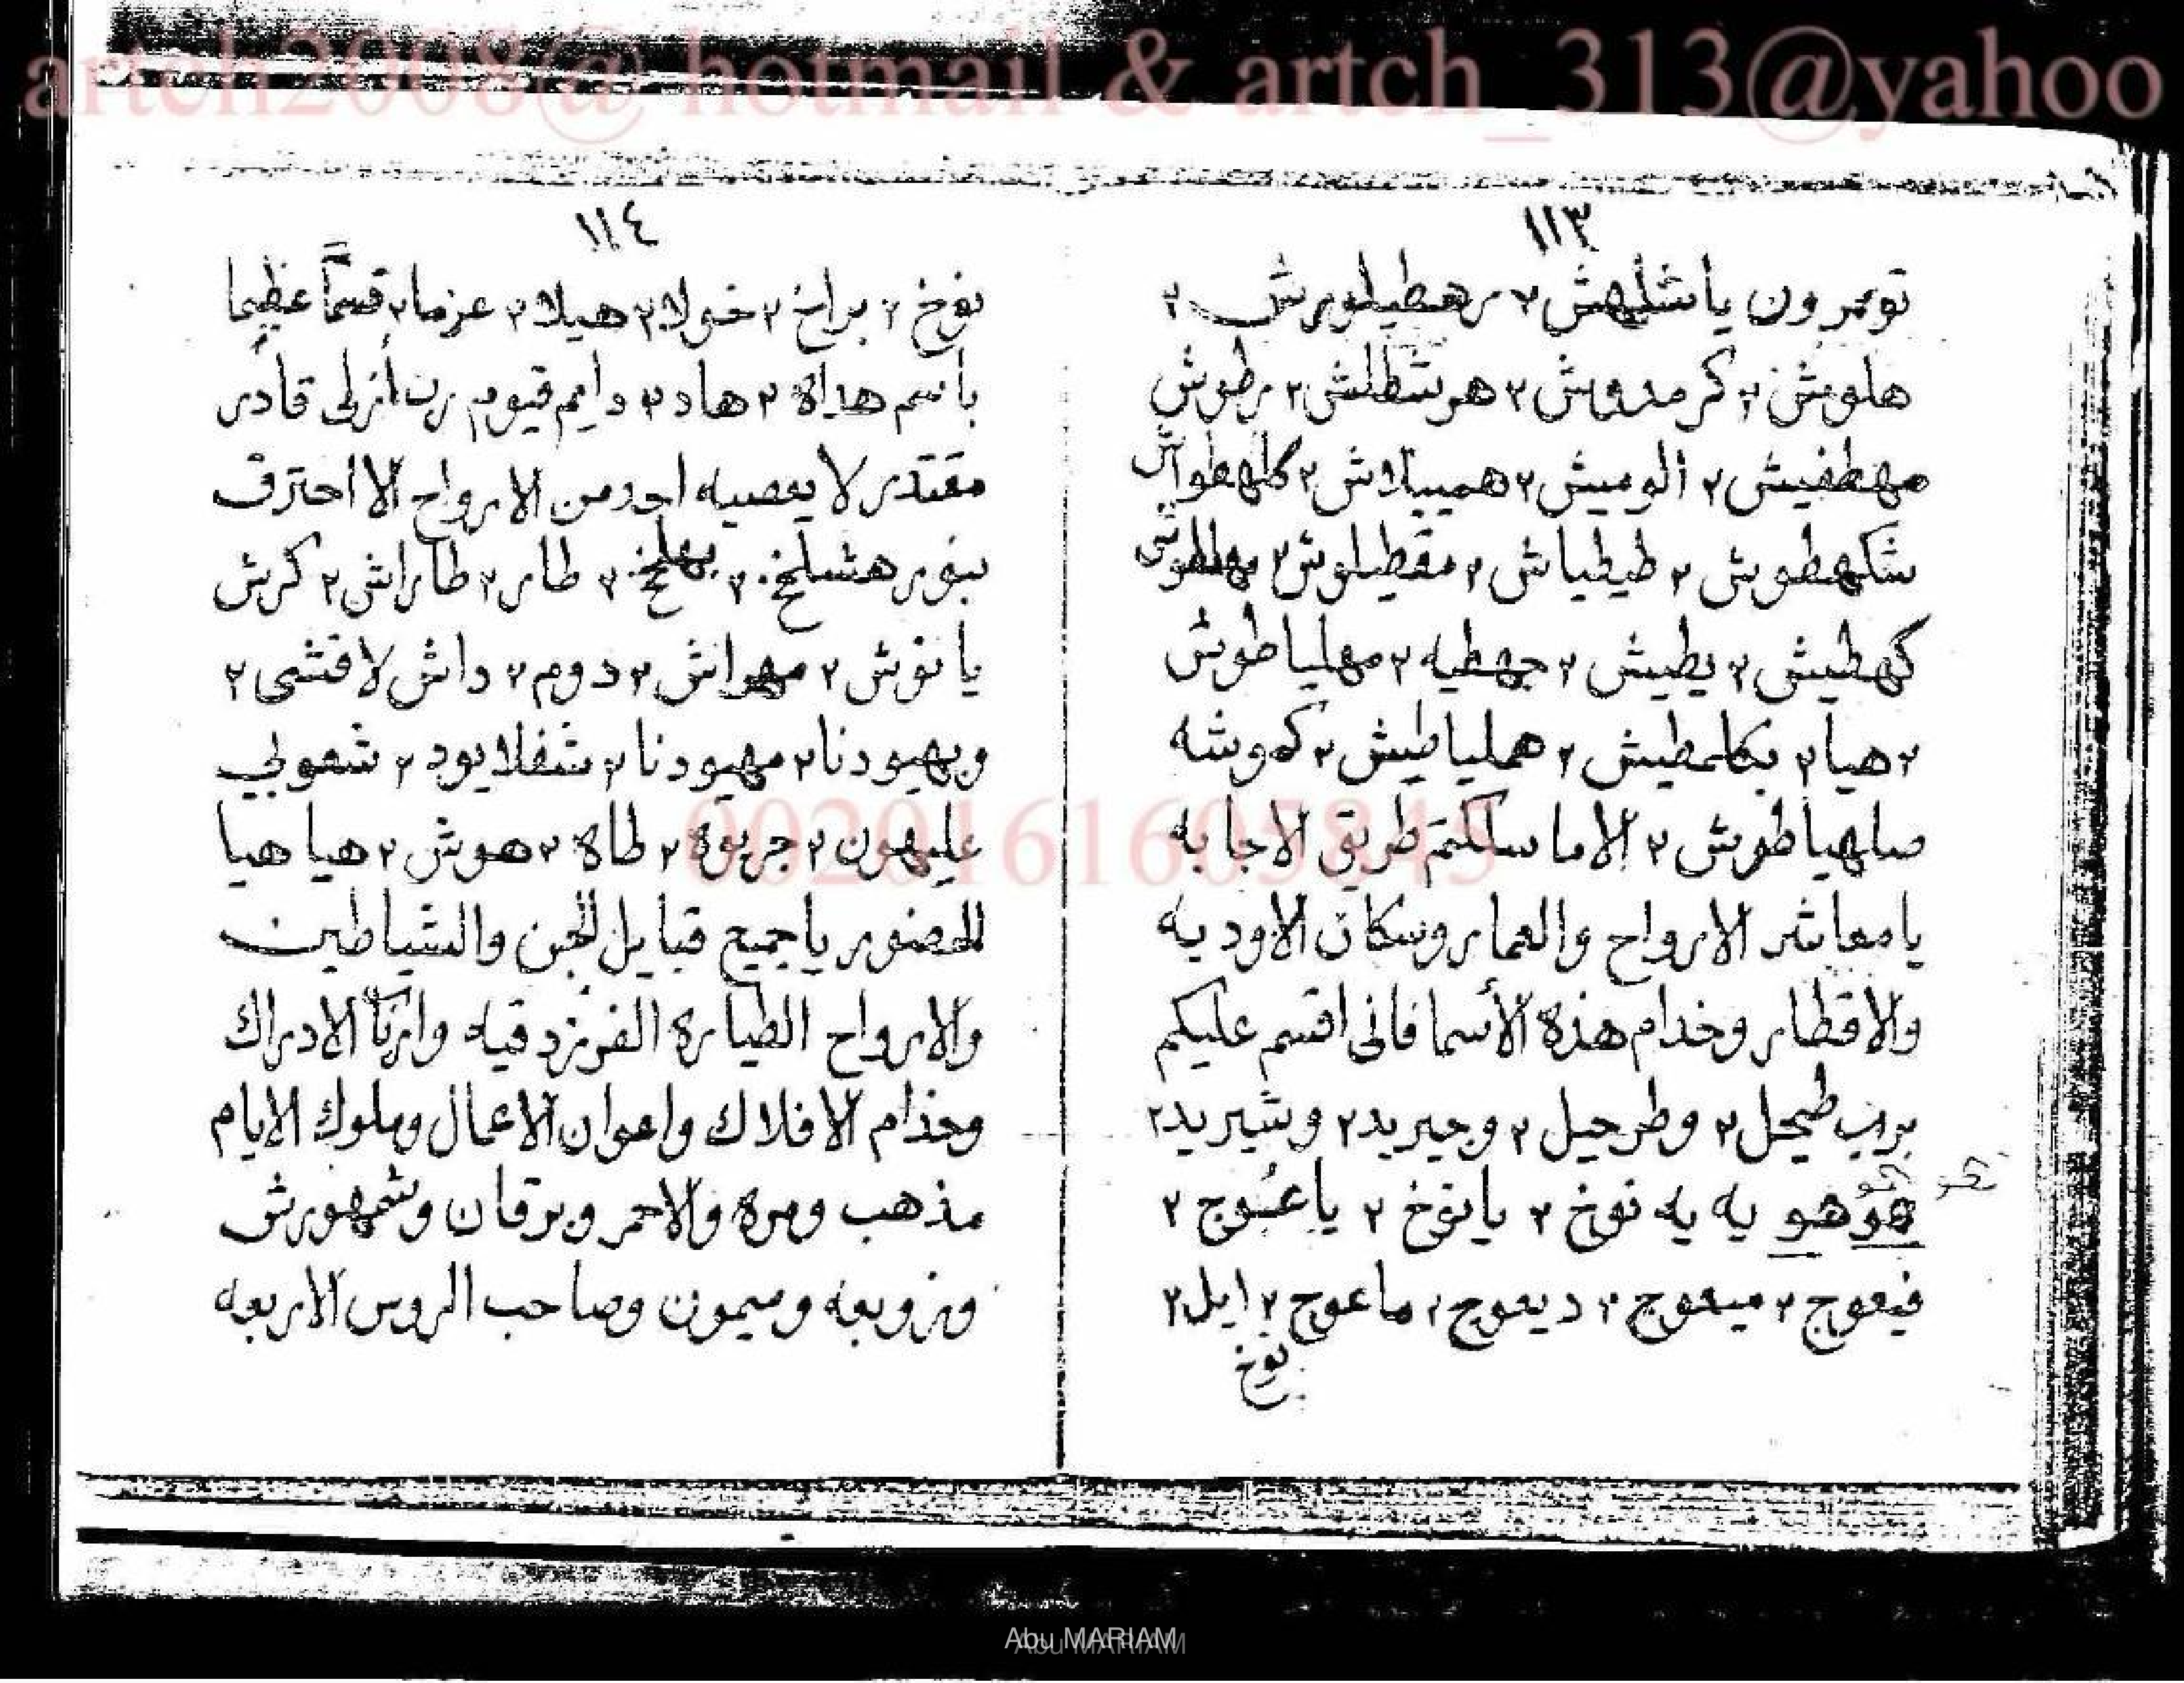 artch2008@ hotmail & artch_313@yahoo
١١٣
تومرون يا شلهش ٢ رهطيلورش ٢
هلوش ٢ كرمدوش ٢ هرشطلش ٢ رطوش
مهطفيش ٢ الوميش ٢ هميبلاش ٢ كلهطواش
شكهطوش ٢ طيطياش ٢ مقطيلوش ٢
كهطيش ٢ يطيش ٢ جهطيه ٢ مهلياطوش
٢ هيا ٢ بكلمطيش ٢ همليا طيش ٢ كموشه
صلهيا طوش ٢ الا ما سلكتم طريق الاجابه
يا معاشر الارواح والعمار وسكان الاوديه
والاقطار وخدام هذه الأسما فانى اقسم عليكم
برب طيحل ٢ وطرحيل ٢ وجيريد ٢ وشيريد ٢
هو هو يه يه نوخ ٢ يا نوخ ٢ يا عوج ٢
فيعوج ٢ ميعوج ٢ ديعوج ٢ ماعوج ٢ ايل ٢
نوخ
١١٤
نوخ ٢ براخ ٢ خولا ٢ هيلا ٢ عزما ٢ قسماً عظيما
باسم هداه ٢ هاد ٢ دايم قيوم رب أزلى قادر
مقتدر لا يعصيه احد من الارواح الا احترق
بنور هشلخ ٢ يهلخ ٢ طار ٢ طاراش ٢ كرش
يا نوش ٢ مهراش ٢ دوم ٢ داش لاقشى ٢
وبهيودنا ٢ مهيودنا ٢ شفلايود ٢ شعوبي
عليهون ٢ جريوه ٢ طاه ٢ هوش ٢ هيا هيا
للحضور يا جميع قبايل الجن والشياطين
والارواح الطياره الفرزدقيه الادراك
وخدام الافلاك واعوان الاعمال وملوك الايام
مذهب ومره والاحمر وبرقان وشمهورش
وزوبعه وميمون وصاحب الروس الاربعه
0020161605845
Abu MARIAM